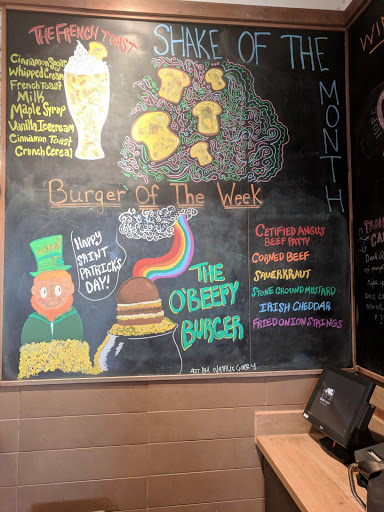 THE FRENCH TOAST
SHAKE OF THE
MONTH
Cinnamon Sugar
Whipped Cream
French Toast
Milk
Maple Syrup
Vanilla Icecream
Cinnamon Toast
Crunch Cereal
BURGER OF THE WEEK
HAPPY
SAINT
PATRICK'S
DAY!
THE
O'BEEFY
BURGER
CETIFIED ANGUS
BEEF PATTY
CORNED BEEF
SAUERKRAUT
STONE GROUND MUSTARD
IRISH CHEDDAR
FRIED ONION STRINGS